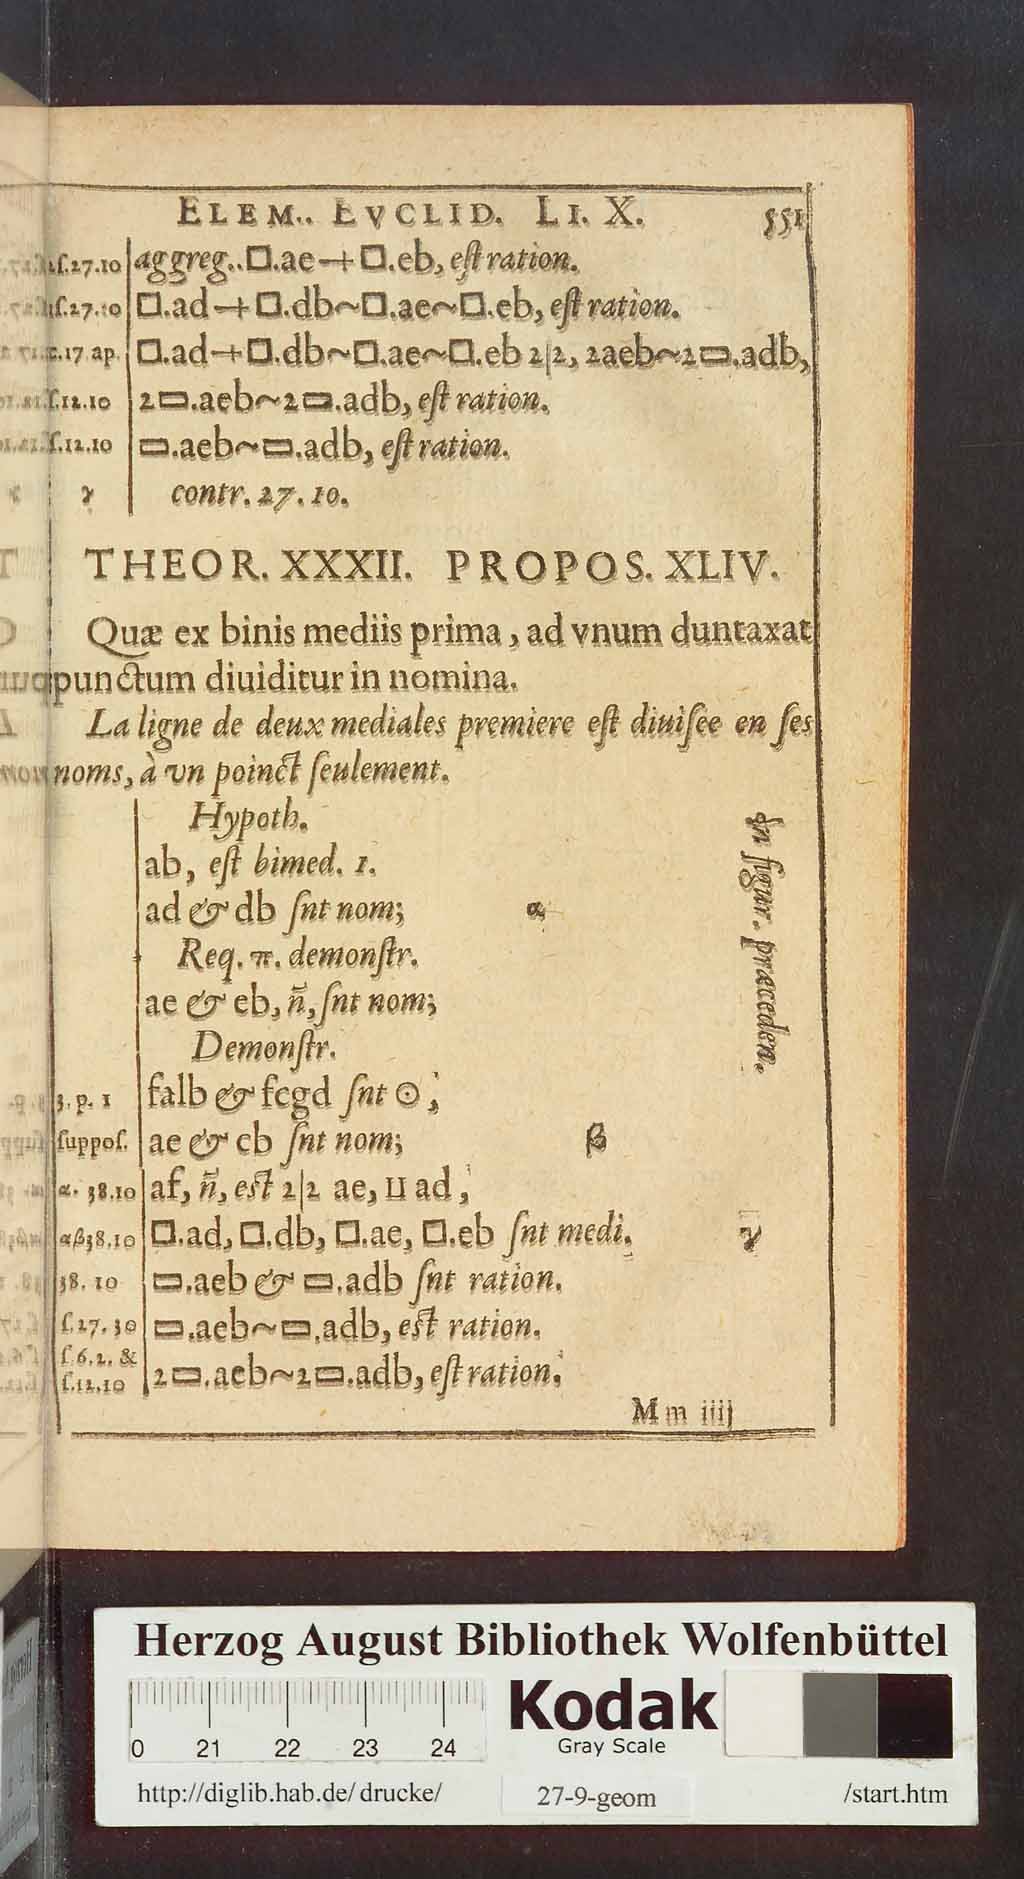 ELEM.. EVCLID. LI. X. 551
ſ.27.10 aggreg..□.ae+□.eb, eſt ration.
ſ.27.10 □.ad+□.db~□.ae~□.eb, eſt ration.
c.17.ap. □.ad+□.db~□.ae~□.eb 2|2, 2aeb~2▭.adb,
ſ.12.10 2▭.aeb~2▭.adb, eſt ration.
ſ.12.10 ▭.aeb~▭.adb, eſt ration.
γ contr. 27. 10.
THEOR. XXXII. PROPOS. XLIV.
Quæ ex binis mediis prima, ad vnum duntaxat
punctum diuiditur in nomina.
La ligne de deux mediales premiere eſt diuiſee en ſes
noms, à vn poinct ſeulement.
Hypoth.
ab, eſt bimed. 1.
ad & db ſnt nom; α
Req. π. demonſtr.
ae & eb, ñ, ſnt nom;
Demonſtr.
3. p. 1 falb & fcgd ſnt ⊙;
ſuppoſ. ae & cb ſnt nom; β
α. 38.10 af, ñ, eſt 2|2 ae, ⊔ ad;
αβ38.10 □.ad, □.db, □.ae, □.eb ſnt medi. γ
38. 10 ▭.aeb & ▭.adb ſnt ration.
ſ.27. 30 ▭.aeb~▭.adb, eſt ration.
ſ.6.2. &
ſ.12.10 2▭.aeb~2▭.adb, eſt ration;
In figur. præceden.
Mm iiij
Herzog August Bibliothek Wolfenbüttel
Kodak
Gray Scale
0 21 22 23 24
http://diglib.hab.de/drucke/ 27-9-geom /start.htm